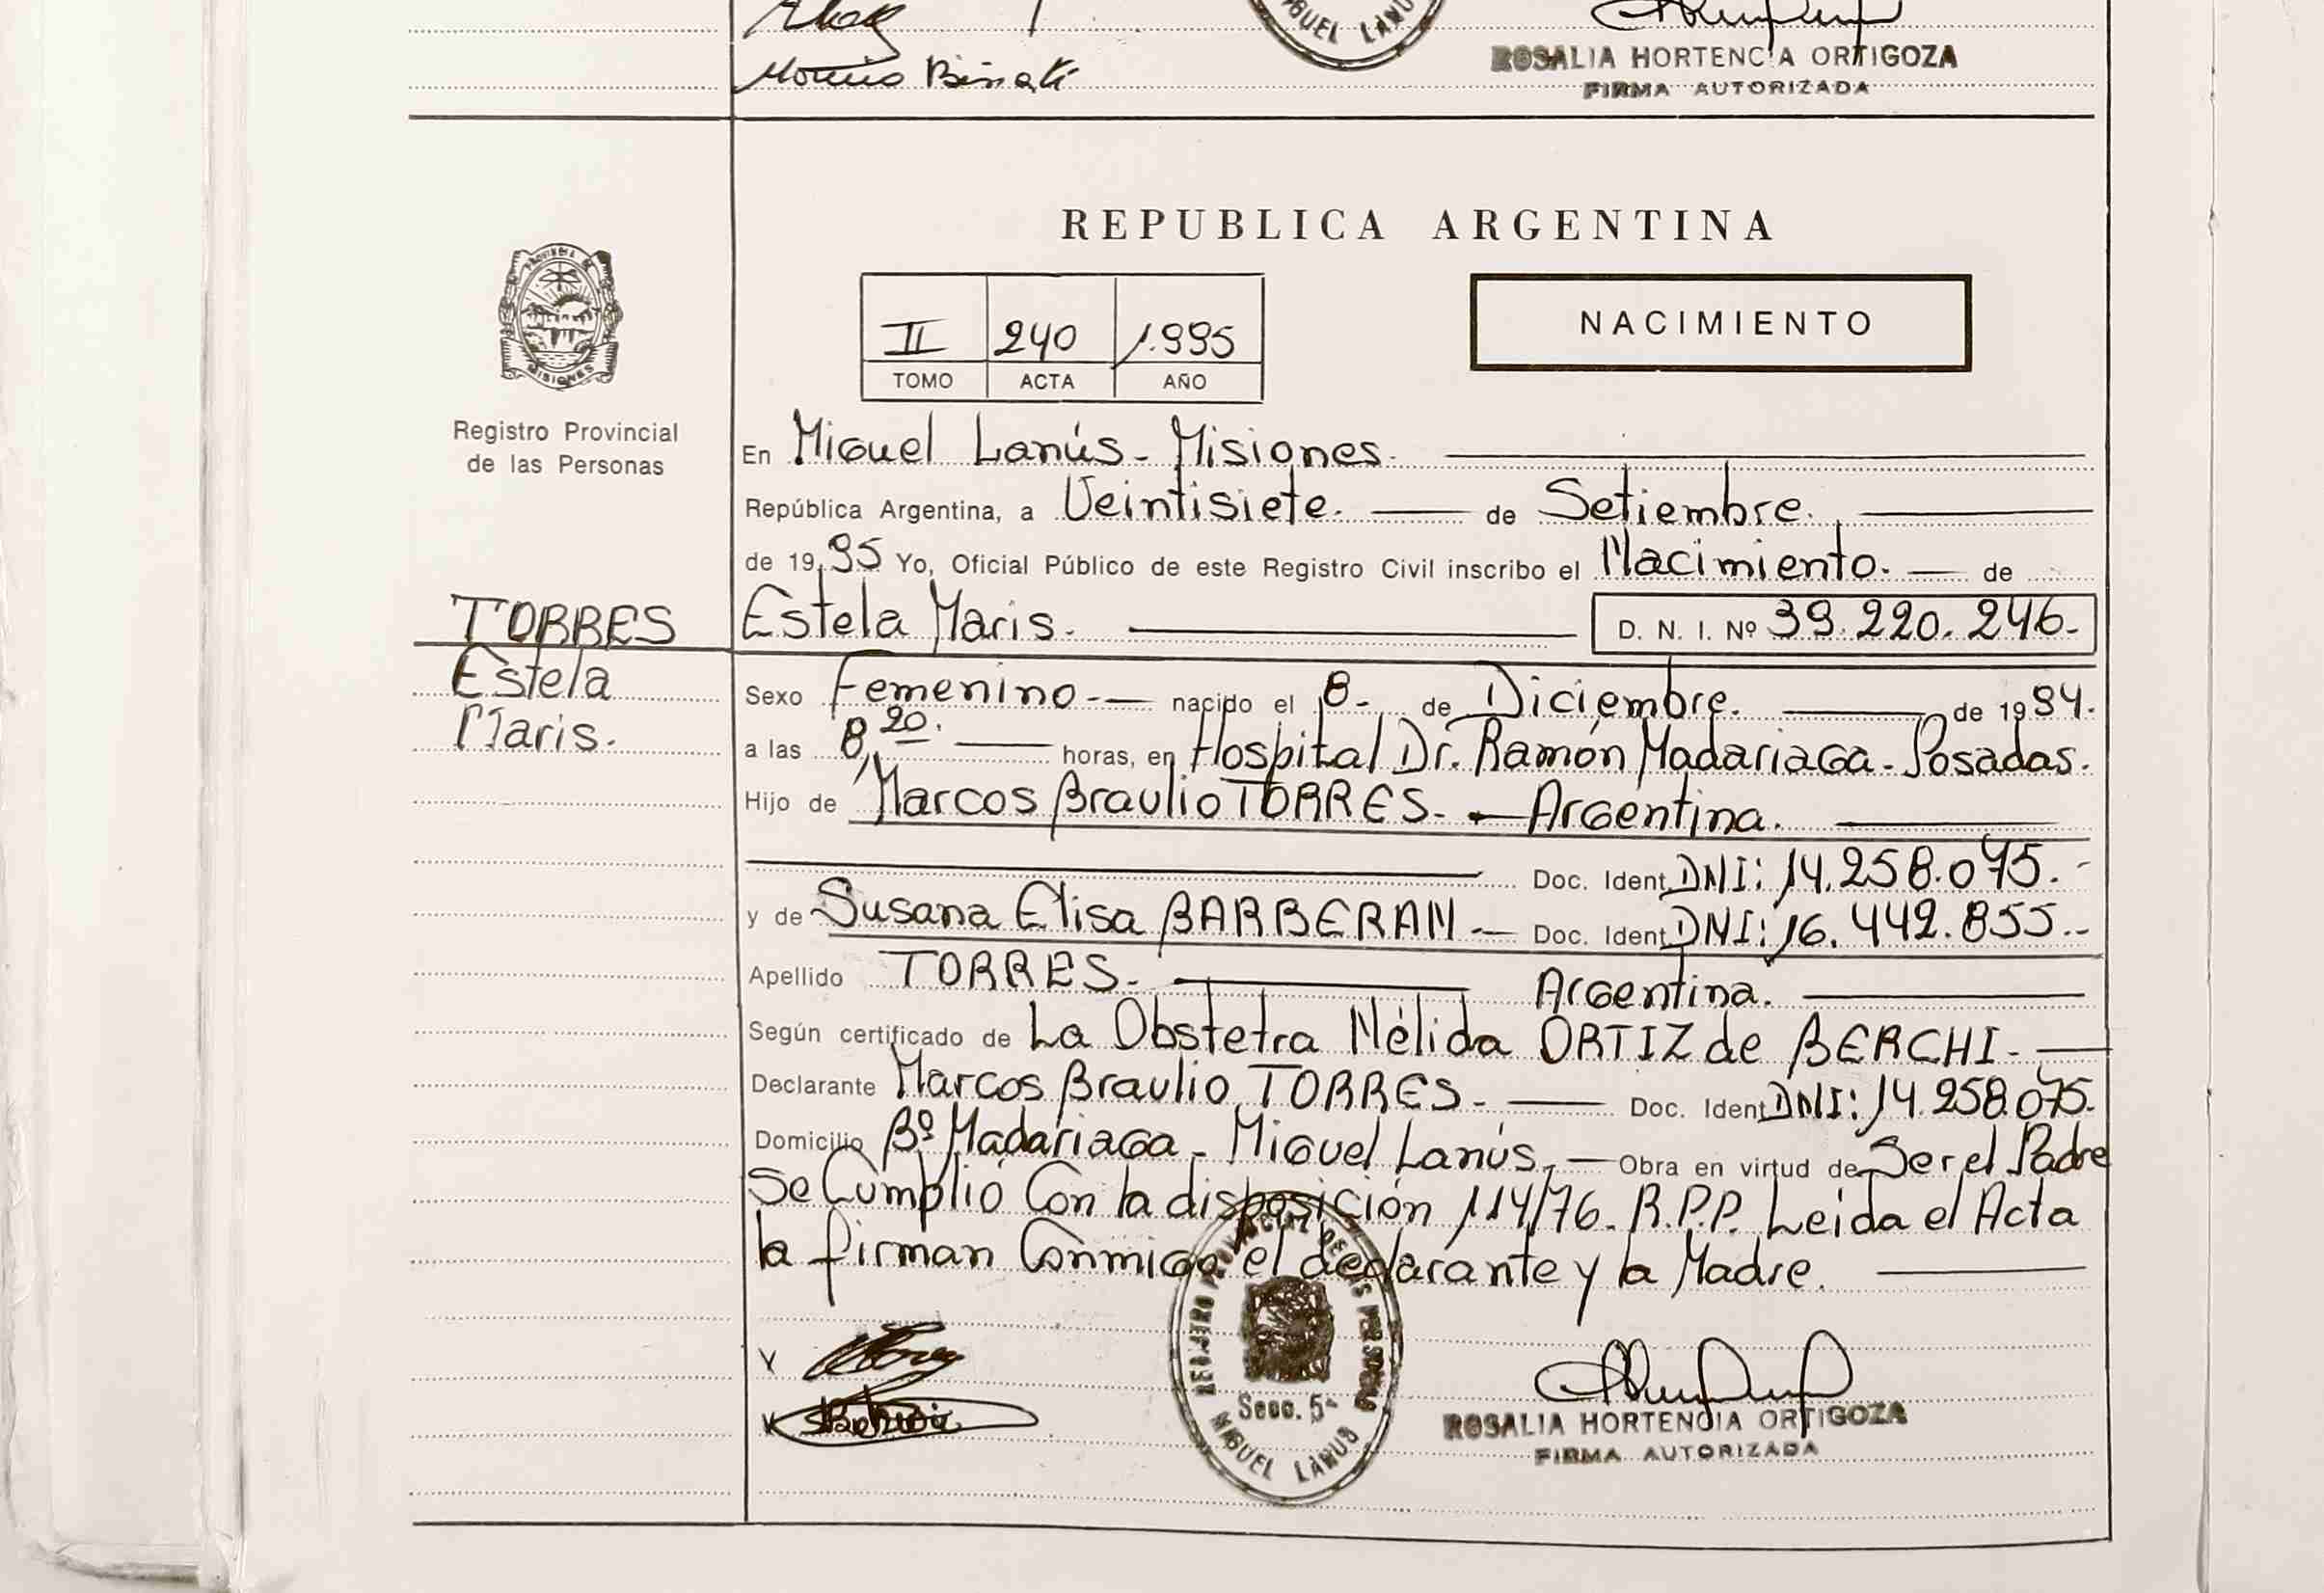 MIGUEL LANUS
Morinio Binati
ROSALIA HORTENCIA ORTIGOZA
FIRMA AUTORIZADA
REPUBLICA ARGENTINA
PROVINCIA DE
MISIONES
II 240 1.995
TOMO ACTA AÑO
NACIMIENTO
Registro Provincial
de las Personas
En Miguel Lanús - Misiones.
República Argentina, a Veintisiete. de Setiembre.
de 19 95 Yo, Oficial Público de este Registro Civil inscribo el Nacimiento. de
TORRES
Estela
Maris.
Estela Maris. D. N. I. Nº 39.220.246.-
Sexo Femenino.- nacido el 8- de Diciembre. de 19 94.
a las 8,20. horas, en Hospital Dr. Ramón Madariaga - Posadas.
Hijo de Marcos Braulio TORRES. - Argentina.
Doc. Ident. DNI: 14.258.075.-
y de Susana Elisa BARBERAN - Doc. Ident. DNI: 16.442.855.-
Apellido TORRES. Argentina.
Según certificado de La Obstetra Nélida ORTIZ de BERCHI.-
Declarante Marcos Braulio TORRES. - Doc. Ident. DNI: 14.258.075.
Domicilio Bº Madariaga - Miguel Lanús. - Obra en virtud de Ser el Padre
Se Cumplió Con la disposición 114/76. R.P.P. Leída el Acta
la firman Conmigo el declarante y la Madre.
REGISTRO PROVINCIAL DE LAS PERSONAS
Secc. 5ª
MIGUEL LANUS
ROSALIA HORTENCIA ORTIGOZA
FIRMA AUTORIZADA